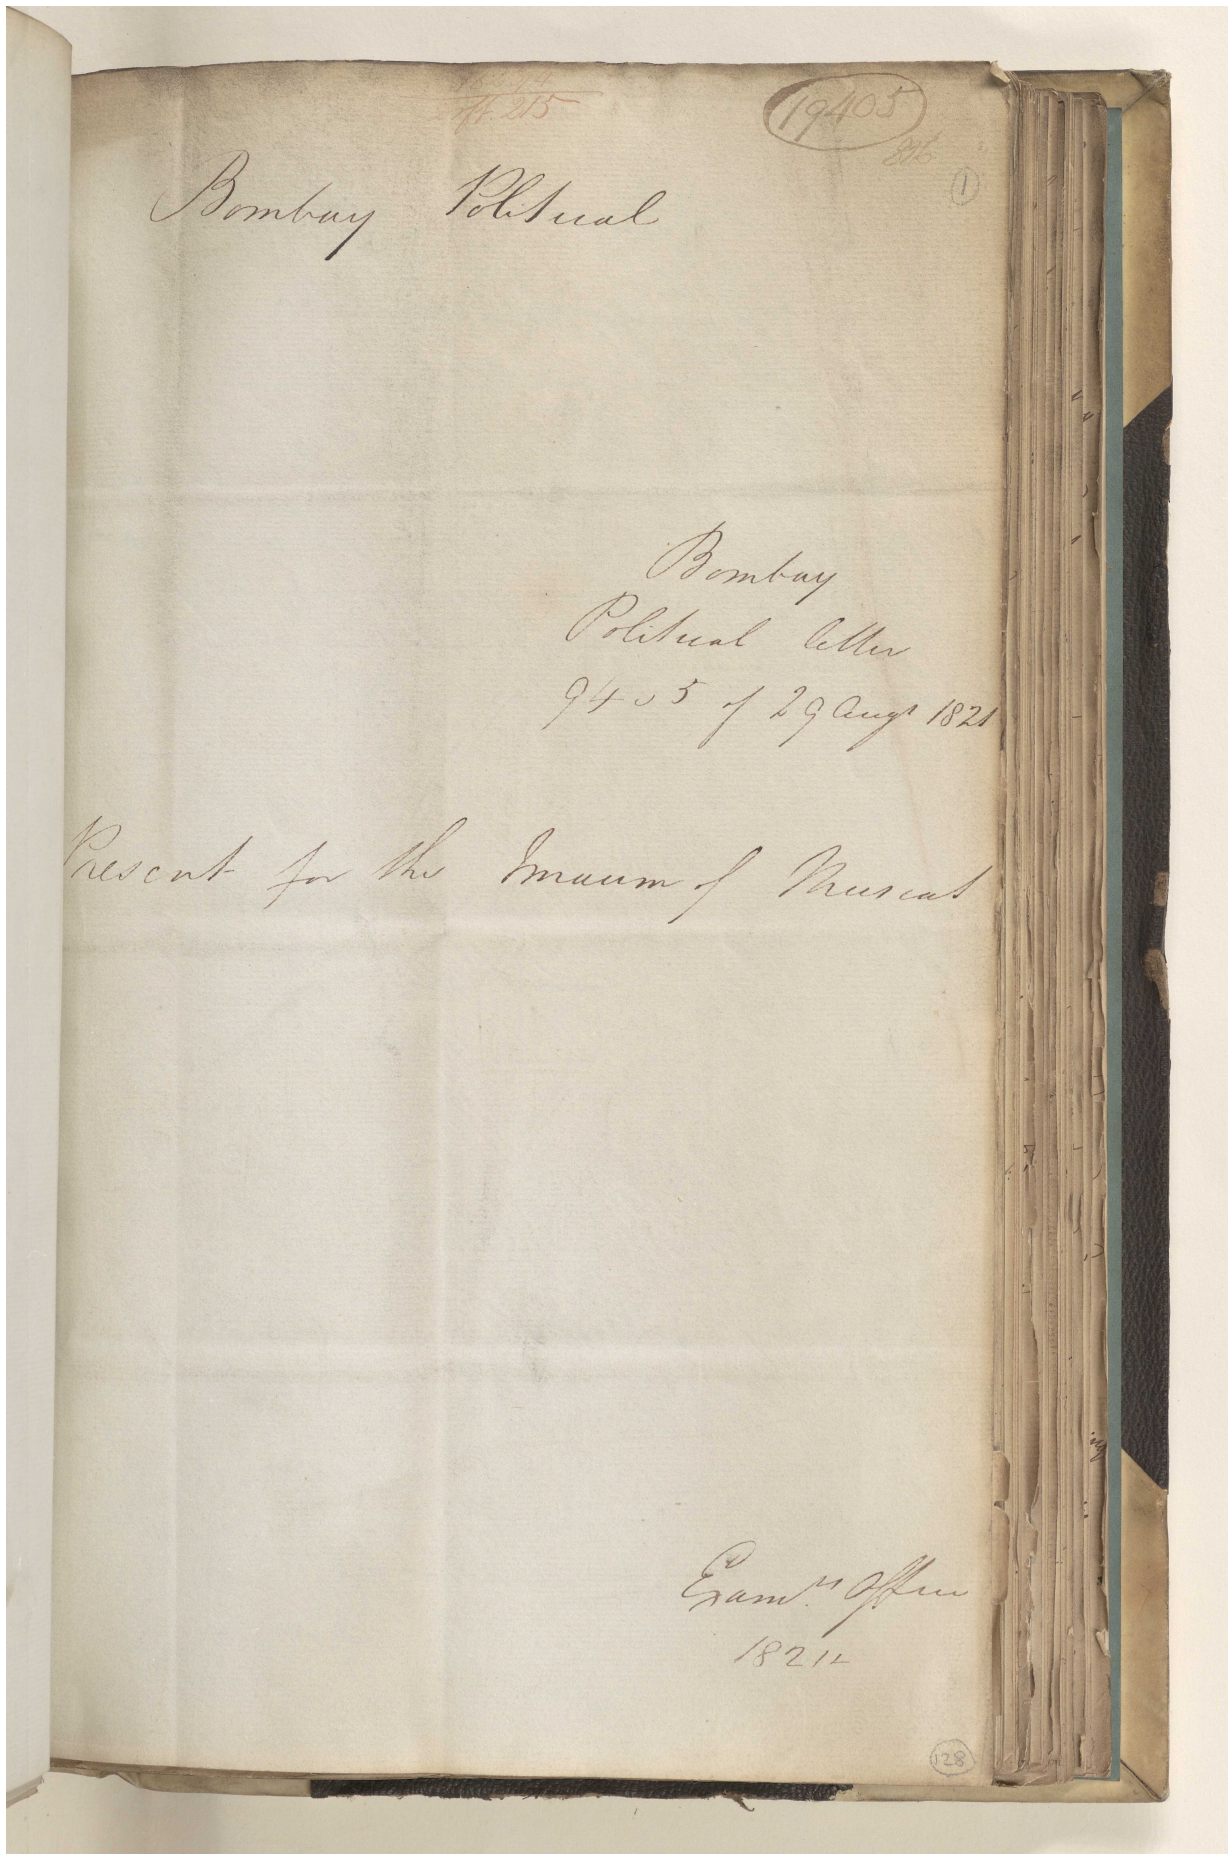 19405
816
1
Bombay Political
Bombay
Political letter
9405 of 29 Augt 1821
Present for the Imaum of Muscat
Examrs Office
128